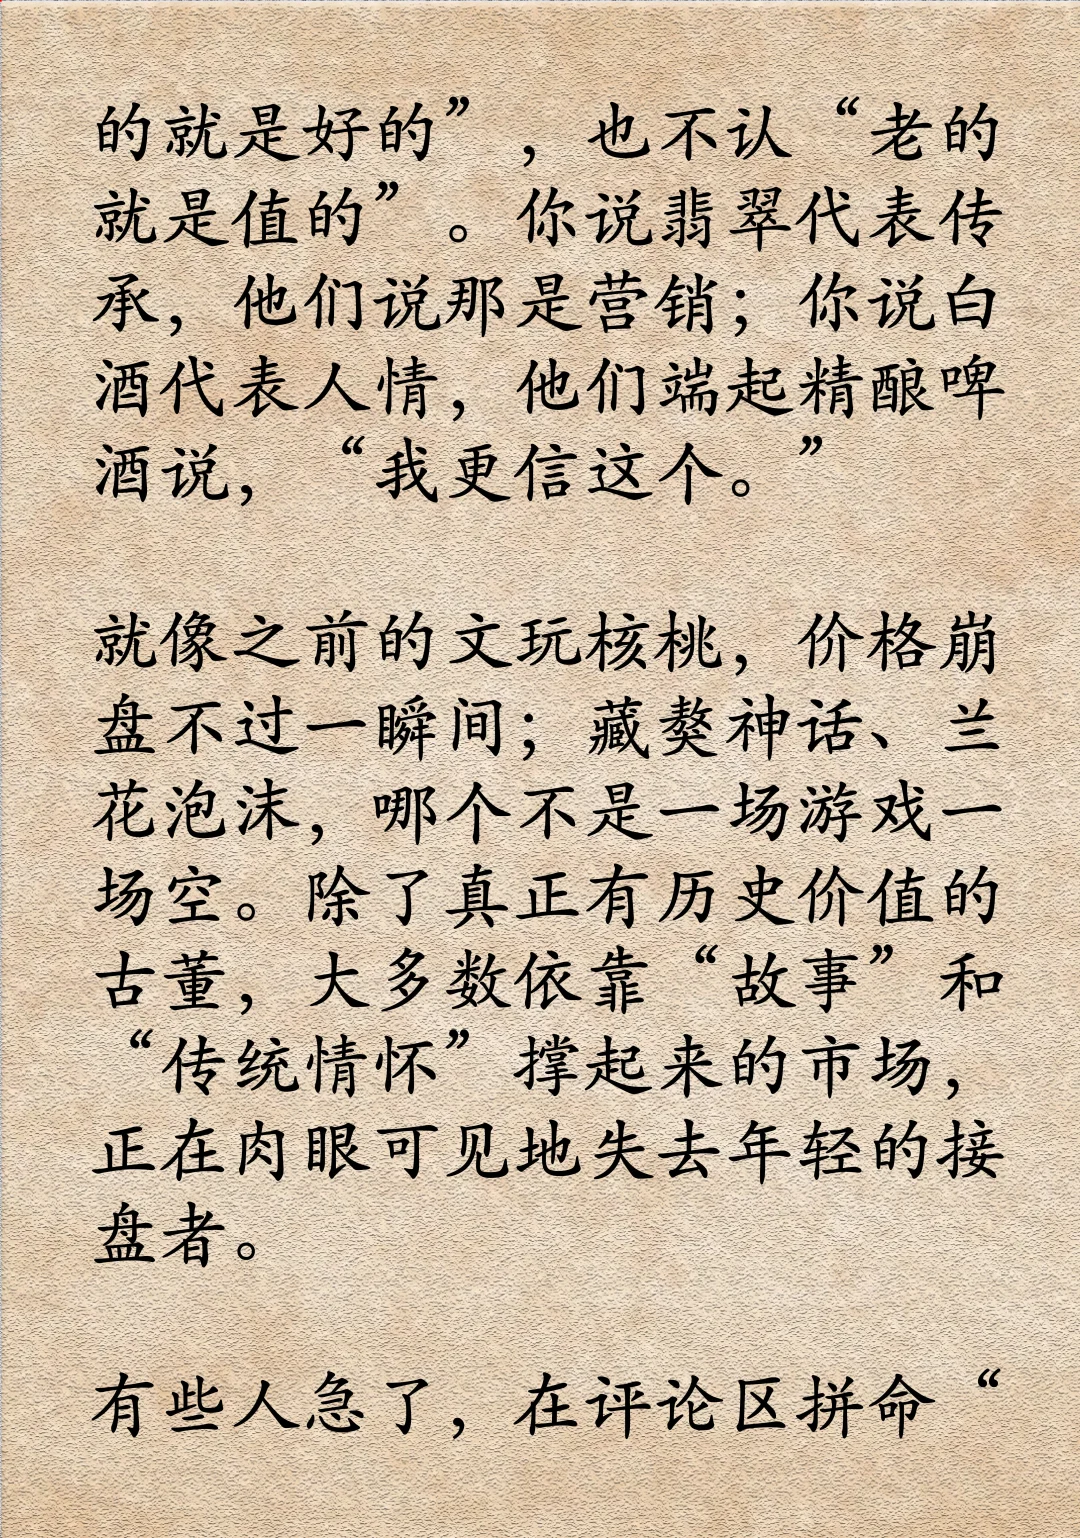 的就是好的”，也不认“老的
就是值的”。你说翡翠代表传
承，他们说那是营销；你说白
酒代表人情，他们端起精酿啤
酒说，“我更信这个。”
就像之前的文玩核桃，价格崩
盘不过一瞬间；藏獒神话、兰
花泡沫，哪个不是一场游戏一
场空。除了真正有历史价值的
古董，大多数依靠“故事”和
“传统情怀”撑起来的市场，
正在肉眼可见地失去年轻的接
盘者。
有些人急了，在评论区拼命“